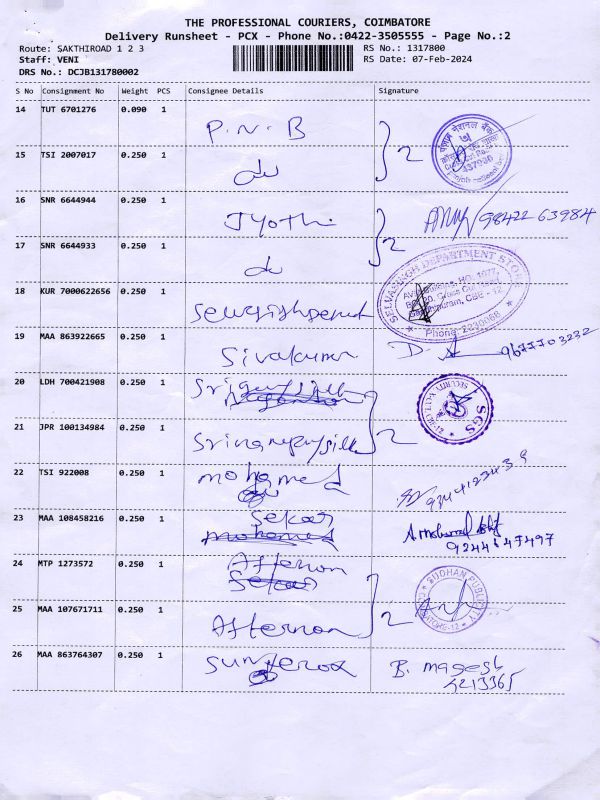 THE PROFESSIONAL COURIERS, COIMBATORE
Delivery Runsheet - PCX - Phone No.:0422-3505555 - Page No.:2
Route: SAKTHIROAD 1 2 3 RS No.: 1317800
Staff: VENI RS Date: 07-Feb-2024
DRS No.: DCJB131780002
S No Consignment No Weight PCS Consignee Details Signature
14 TUT 6701276 0.090 1 P.N.B } 2
15 TSI 2007017 0.250 1 do
16 SNR 6644944 0.250 1 Jyothi } 2 98422 63984
17 SNR 6644933 0.250 1 do
SELVASINGH DEPARTMENT STORE
Phone: 2230968
18 KUR 7000622656 0.250 1
19 MAA 863922665 0.250 1 Sivakumar D. 9677703232
20 LDH 700421908 0.250 1
SECURITY
SGS
21 JPR 100134984 0.250 1 2
22 TSI 922008 0.250 1 mohamed
23 MAA 108458216 0.250 1 Sekar
mohamed 9244647497
24 MTP 1273572 0.250 1 Afternon
Sekar
25 MAA 107671711 0.250 1 Afternon } 2
26 MAA 863764307 0.250 1 B. magesh
4213365